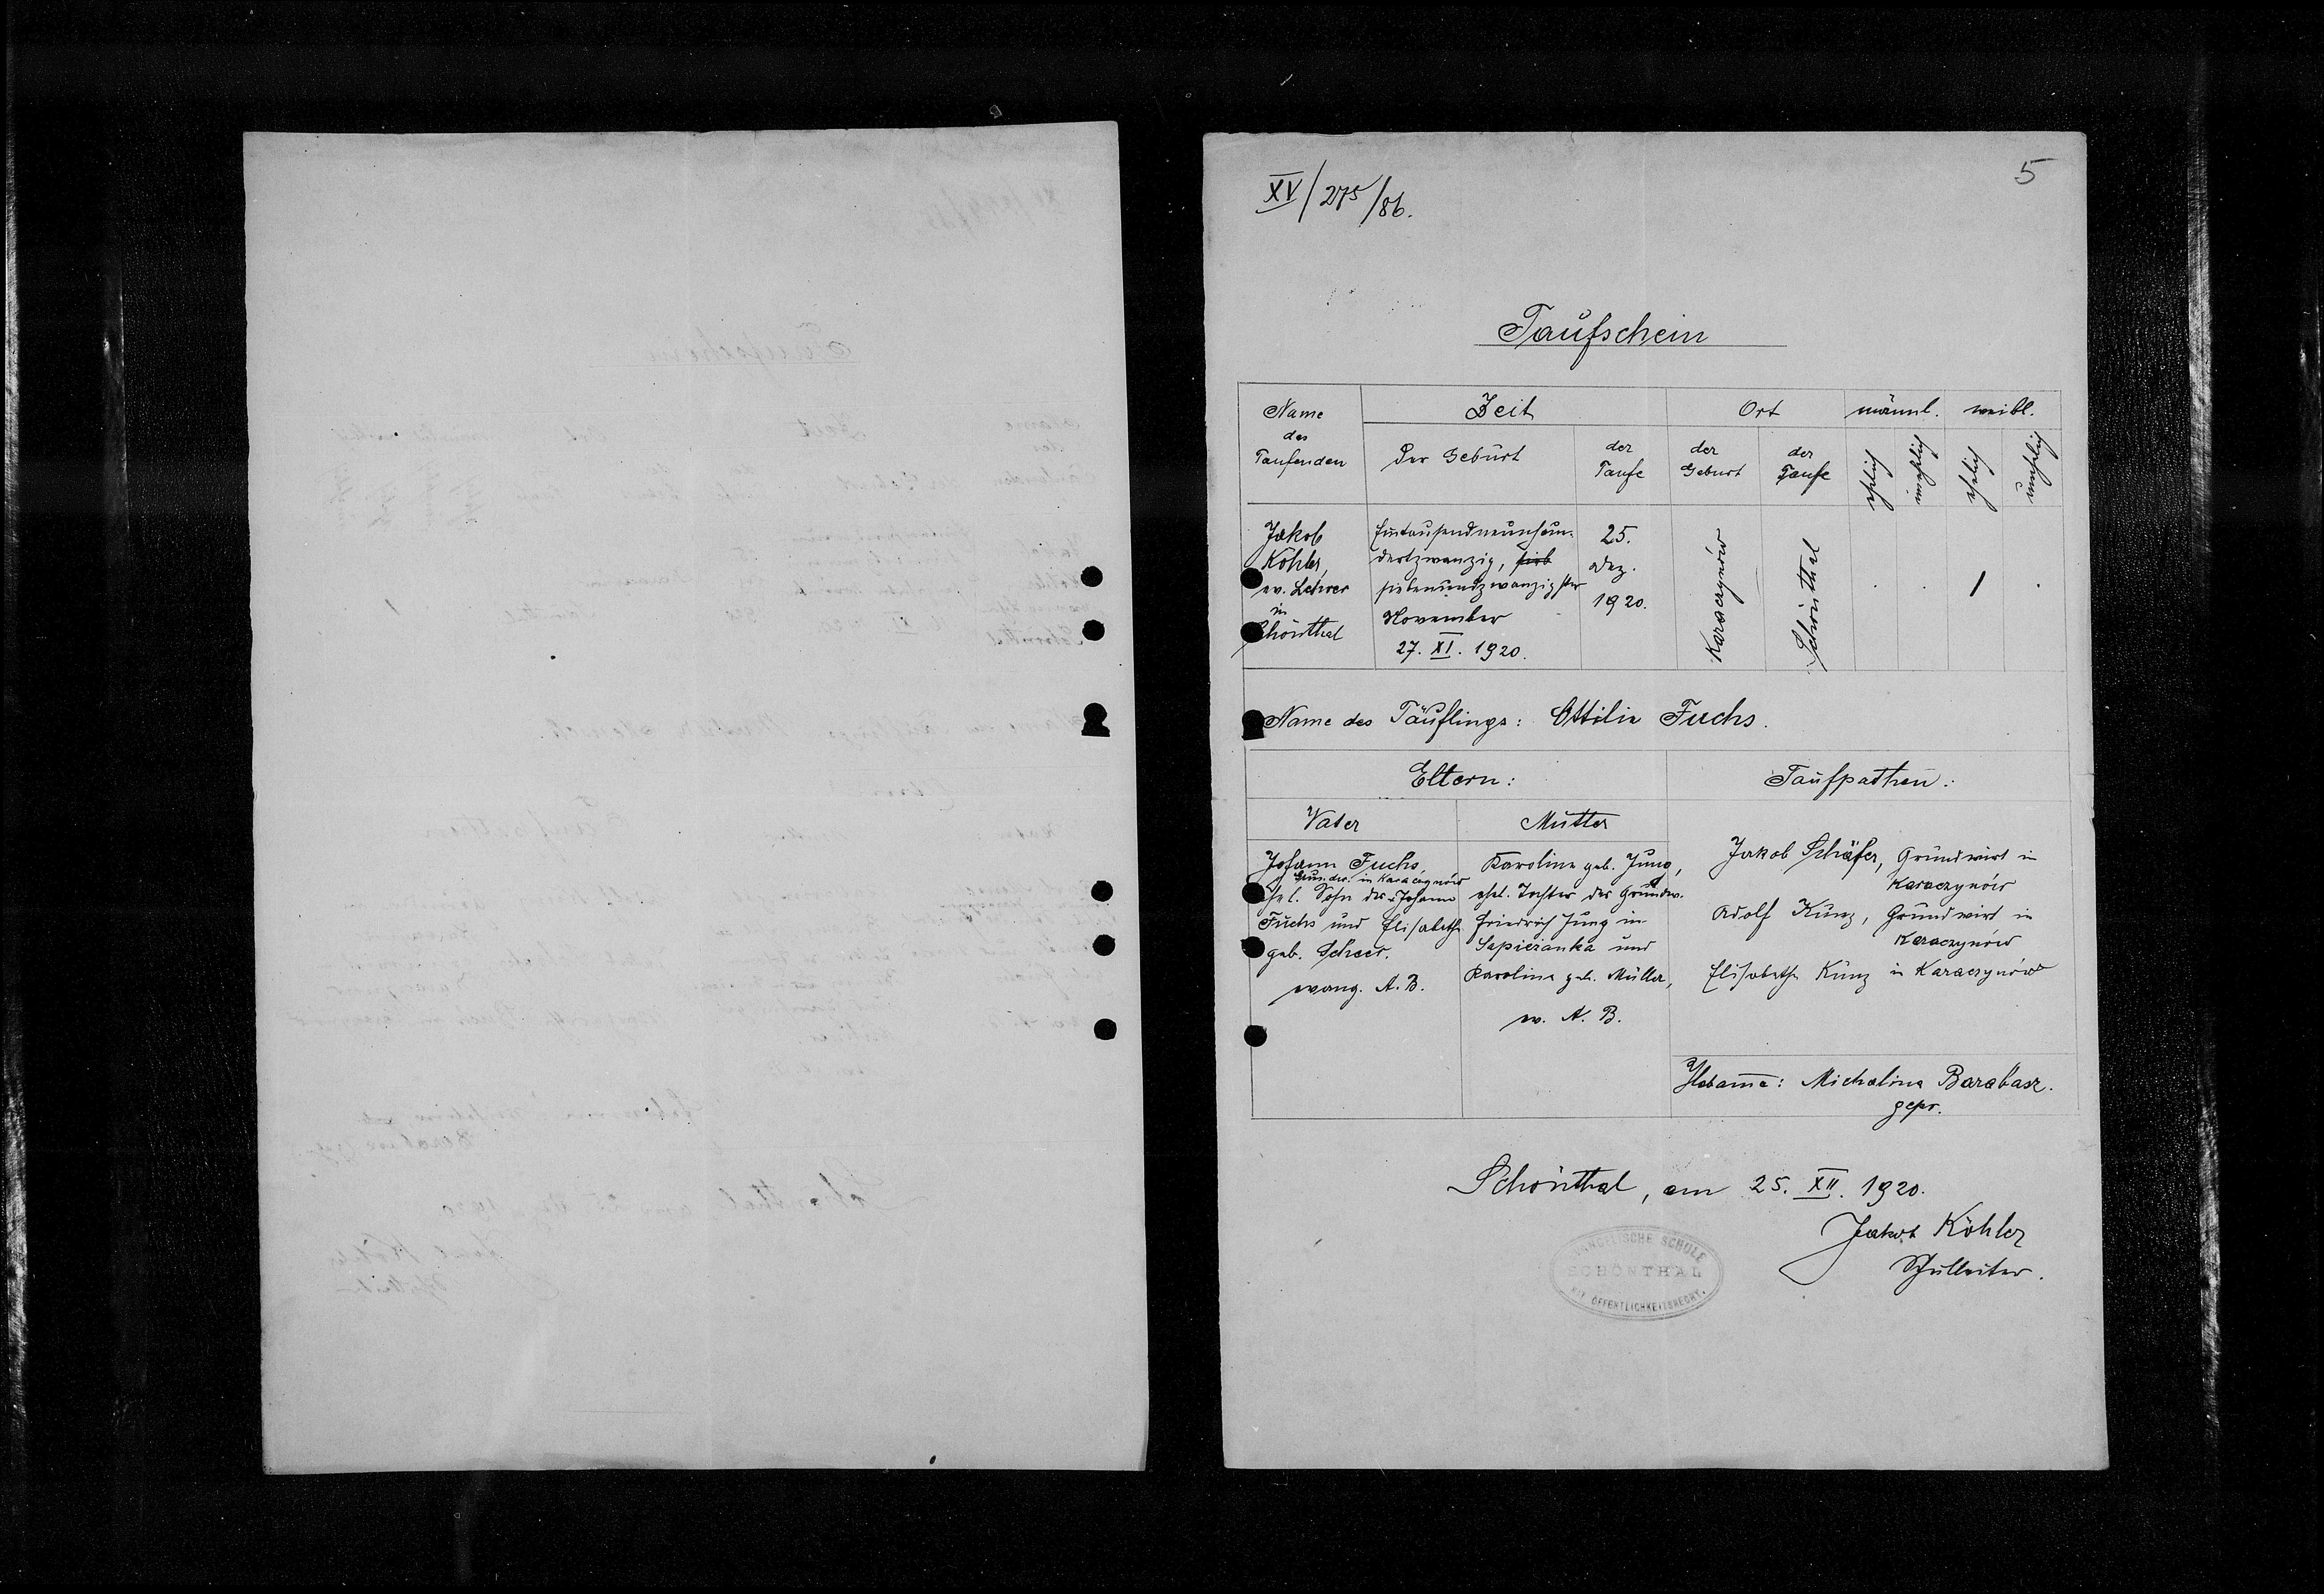 5
XV/275/86.
Taufschein
Name des Taufenden
Zeit
Ort
männl.
weibl.
Der Geburt
der Taufe
der Geburt
der Taufe
ehelich
unehlich
ehelich
unehlich
Jakob
Köhler,
ev. Lehrer
in
Schönthal
Eintausendneunhun-
dertzwanzig, sieb
siebenundzwanzigster
November
27. XI. 1920.
25.
Dez.
1920.
Karaczynów
Schönthal
1
Name des Täuflings: Ottilie Fuchs.
Eltern:
Taufpathen:
Vater
Mutter
Johann Fuchs
Grundw. in Karaczynów
ehel. Sohn des Johann
Fuchs und Elisabeth
geb. Scheer.
evang. A. B.
Karolina geb. Jung,
ehel. Tochter des Grundw.
Friedrich Jung in
Sapieżanka und
Karolina geb. Müller,
ev. A. B.
Jakob Schäfer, Grundwirt in
Karaczynów
Adolf Kunz, Grundwirt in
Karaczynów
Elisabeth Kunz in Karaczynów
Hebamme: Michalina Barabasz.
gepr.
Schönthal, am 25. XII. 1920.
Jakob Köhler
Schulleiter.
EVANGELISCHE SCHULE
SCHÖNTHAL
MIT ÖFFENTLICHKEITSRECHT.